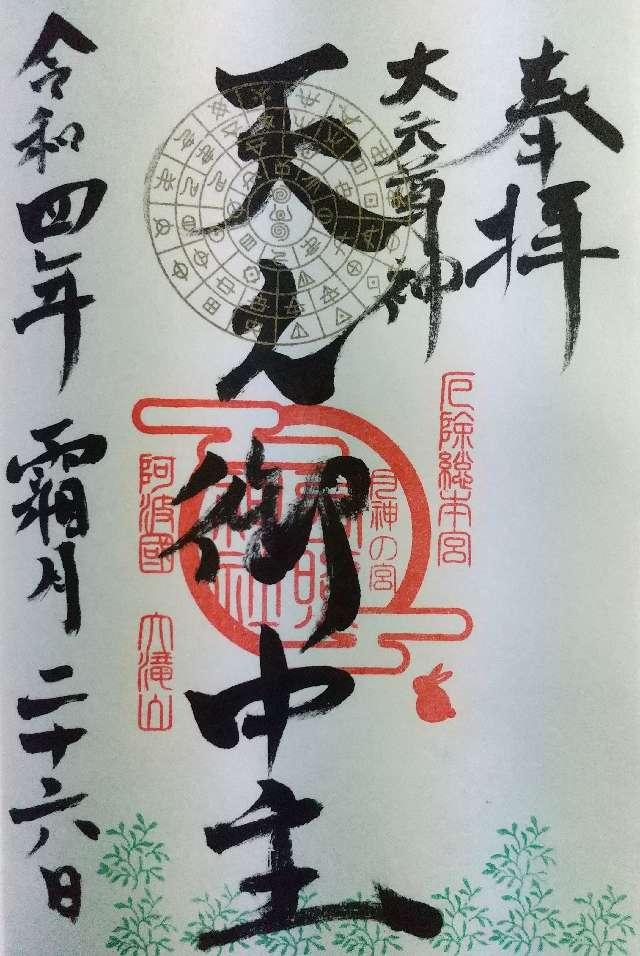 奉拝
大元尊神
天之御中主
令和四年 霜月 二十六日
厄除総本宮
月神の宮
阿波國 大滝山